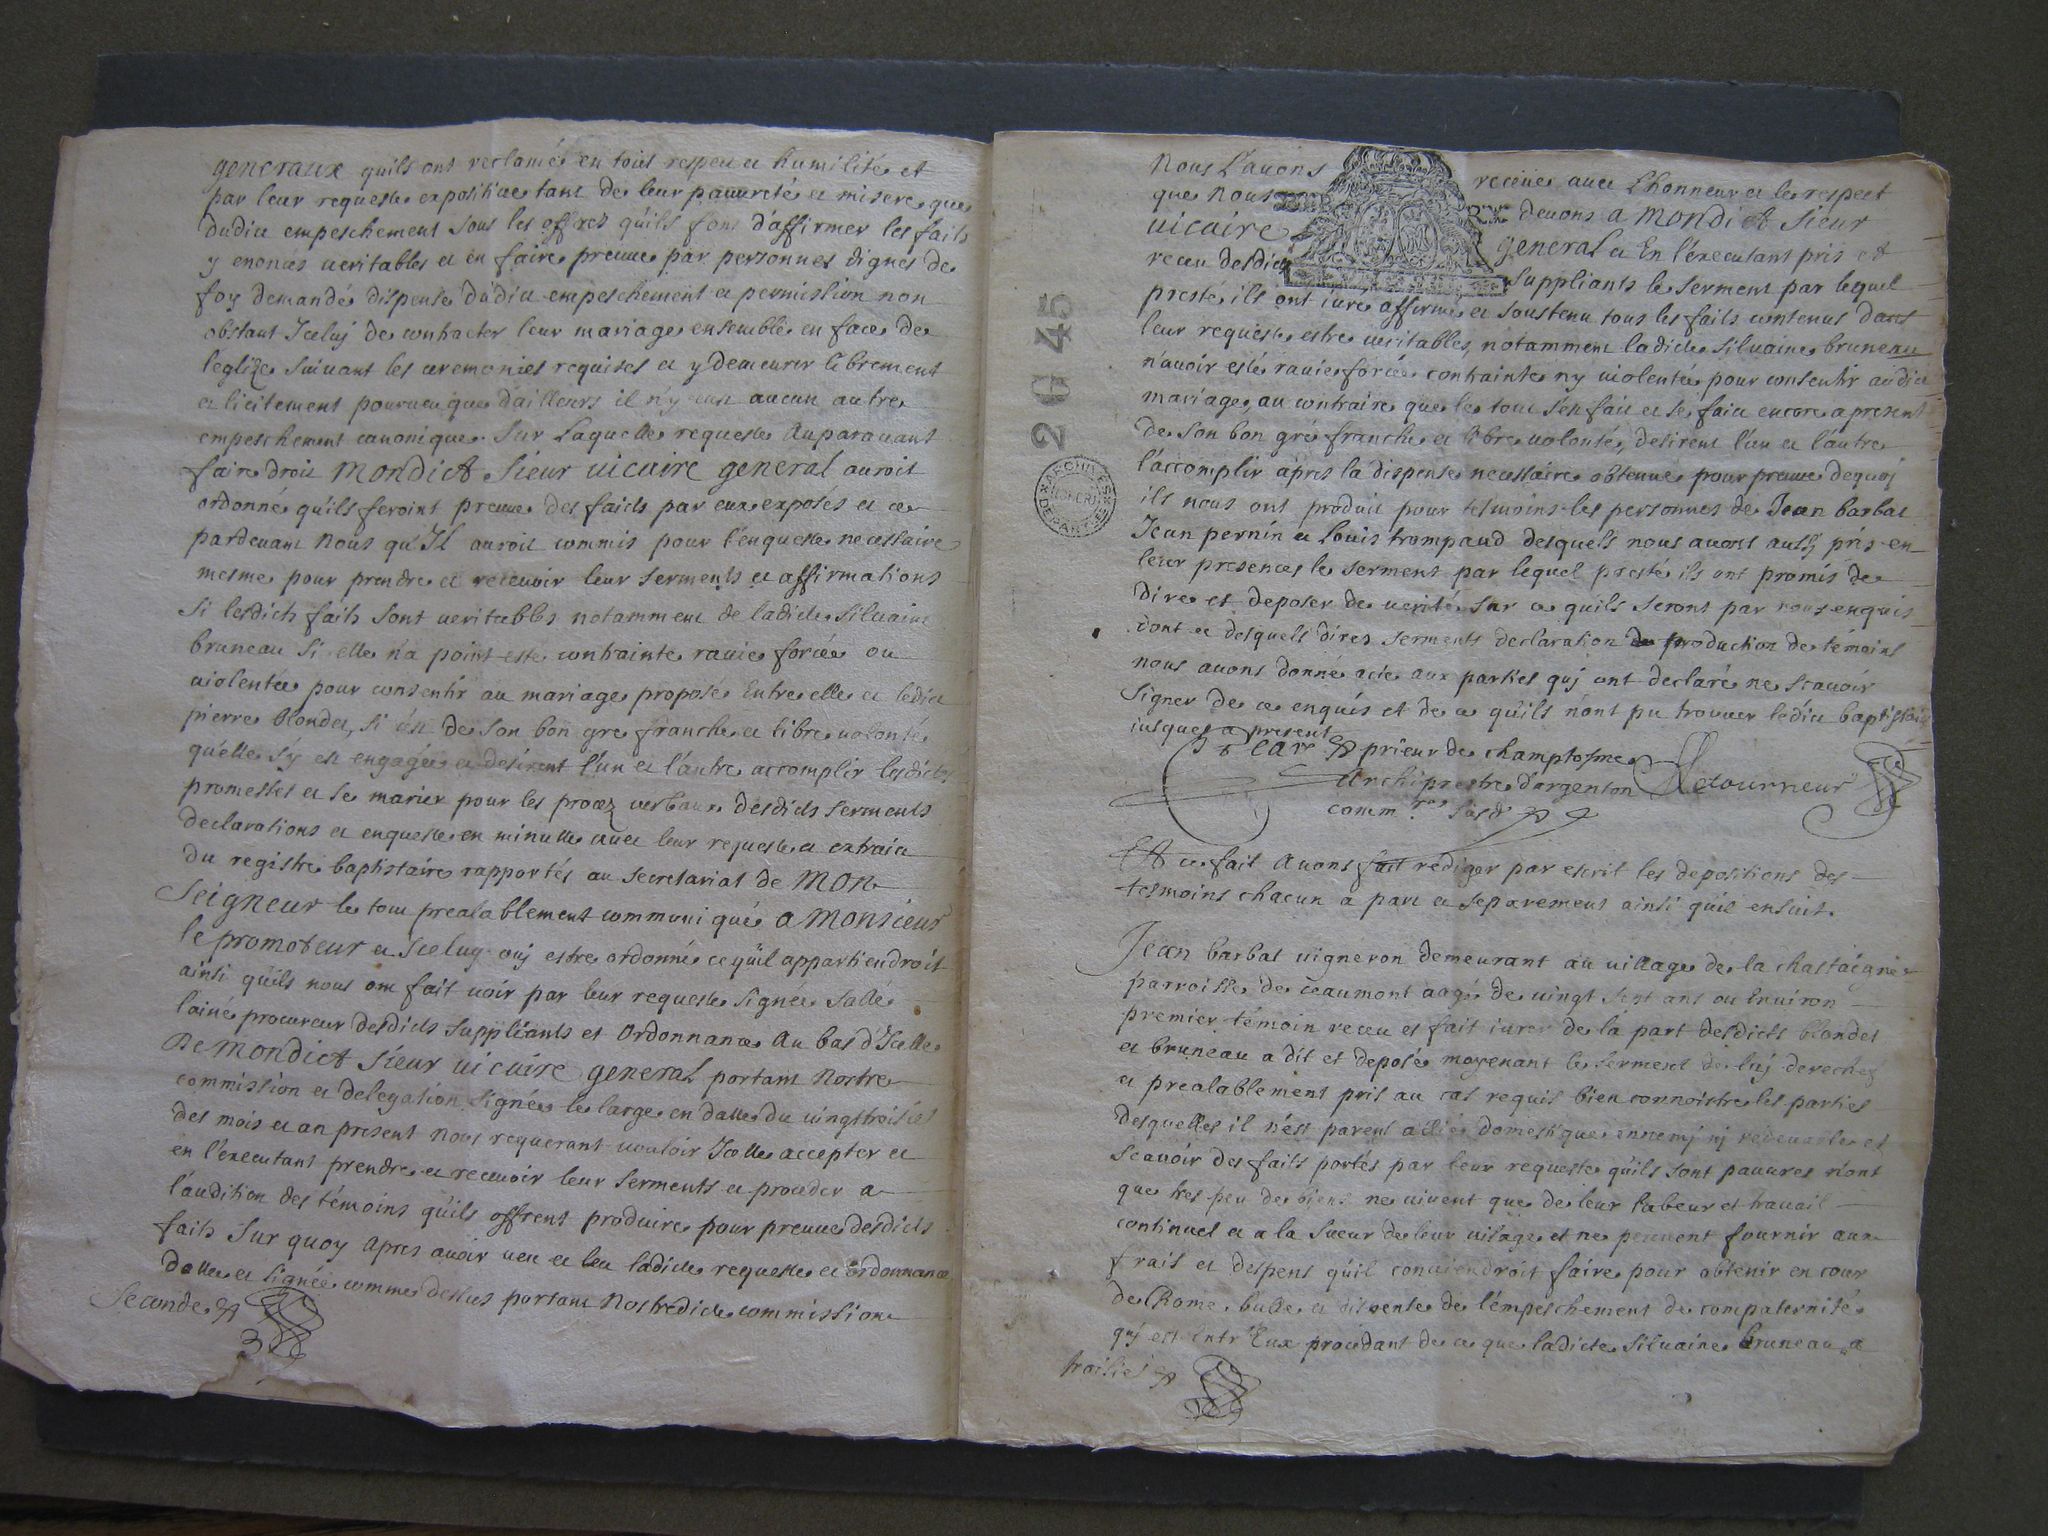 generaux quils ont reclamée en tout respect et humilité et
par leur requeste expositive tant de leur pauvreté et misere que
dudict empeschement sous les offres quils font d'affirmer les faits
y enoncés veritables et en faire preuve par personnes dignes de
foy demandé dispense dudict empeschement et permission non
obstant Iceluy de contracter leur mariage ensemble en face de
leglize suivant les ceremonies requises et y demeurer librement
et licitement pourveu que d'ailleurs il n'y eut aucun autre
empeschement canonique. sur Laquelle requeste Auparavant
faire droit Mondict sieur vicaire general auroit
ordonné quils feroint preuve des faicts par eux exposés et ce
pardevant nous qu'Il auroit commis pour l'enqueste necessaire
mesme pour prendre et recevoir leur serments et affirmations
si lesdicts faits sont veritables notamment de ladicte silvaine
bruneau si elle n'a point este contrainte ravie forcée ou
violentée pour consentir au mariage proposé Entre elle et ledict
pierre blondet, si c'est de son bon gre franche et libre volonté
quelle s'y est engagée et desirent l'un et l'autre accomplir lesdictes
promesses et se marier pour les procez verbaux desdicts serments
declarations et enqueste en minutte avec leur requeste et extraict
du registre baptistaire rapportés au secretariat de Mon
Seigneur le tout prealablement communiqué a Monsieur
le promoteur et Iceluy ouy estre ordonné ce qu'il appartiendroit
ainsi quils nous ont fait voir par leur requeste signée sallé
l'ainé procureur desdicts suppliants et Ordonnance Au bas d'Icelle
De Mondict sieur vicaire general portant Nostre
commission et delegation signée le large en datte du vingtroisie
des mois et an present nous requerant vouloir Icelle accepter et
en l'executant prendre et recevoir leur serments et proceder a
l'audition des témoins quils offrent produire pour preuve desdicts
faits Sur quoy Apres avoir veu et leu ladicte requeste et ordonnance
datte et signée comme dessus portant Nostredicte commission
seconde
Nous L'avons receue avec L'honneur et le respect
que Nous devons a Mondict sieur
vicaire general et En l'executant pris et
receu desdicts suppliants le serment par lequel
presté ils ont iuré affirmé et soustenu tous les faits contenus dans
leur requeste estre veritables, notamment ladicte silvaine bruneau
n'avoir esté ravie forcée contrainte ny violentée pour consentir audict
mariage, au contraire que le tout s'est fait et se faict encore a present
de son bon gré franche et libre volonté, desirent l'un et l'autre
l'accomplir apres la dispense necessaire obtenue pour preuve dequoy
ils nous ont produit pour tesmoins les personnes de Jean barbat
Jean pernin et louis trompaud desquels nous avons aussy pris en
leur presence le serment par lequel presté ils ont promis de
dire et deposer de verité sur ce quils seront par nous enquis
dont et desquels dires serments declaration production de témoins
nous avons donné acte aux parties quy ont declaré ne scavoir
signer de ce enquis et de ce qu'ils n'ont pu trouver ledict baptistaire
iusques a present
prieur de champtosme
Archiprestre d'argenton Letourneur
2 G 45
Et ce fait Avons fait rediger par escrit les depositions des
tesmoins chacun a part et separement ainsi qu'il ensuit.
Jean barbat vigneron demeurant au village de la chastaigne
parroisse de ceaumont aagé de vingt sept ans ou Environ
premier témoin receu et fait iurer de la part desdicts blondet
et bruneau a dit et deposé moyenant le serment de luy derechef
et prealablement pris au cas requis bien connoistre les parties
desquelles il n'est parent allié domestique ennemy ny redevable et
scavoir des faits portés par leur requeste quils sont pauvres n'ont
que tres peu de biens ne vivent que de leur labeur et travail
continuel et a la sueur de leur visage et ne peuvent fournir aux
frais et despens qu'il conviendroit faire pour obtenir en cour
de Rome bulle et dispense de l'empeschement de compaternité
quy est Entr'Eux procedant de ce que ladicte silvaine bruneau a